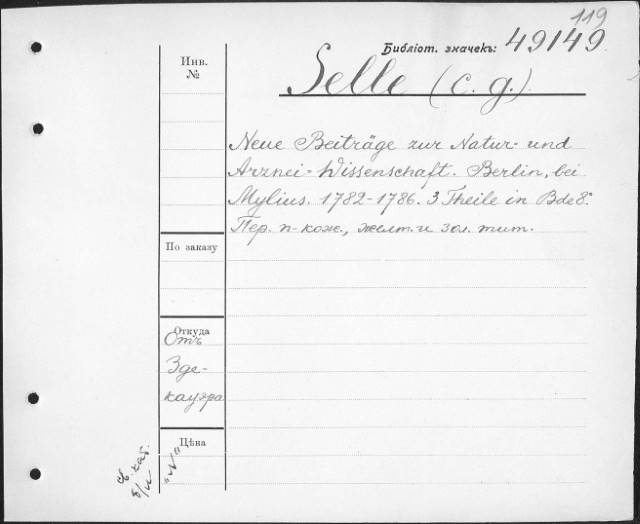 119
Библіот. значекъ: 49149
Инв.
№
Selle (C. G.)
Neue Beiträge zur Natur- und
Arznei-Wissenschaft. Berlin, bei
Mylius. 1782-1786. 3 Theile in Bde 8º
Пер. п-кож., желт. и зол. тит.
По заказу
Откуда
Отъ
Зде-
кауэра
Цѣна
"и"
каб.